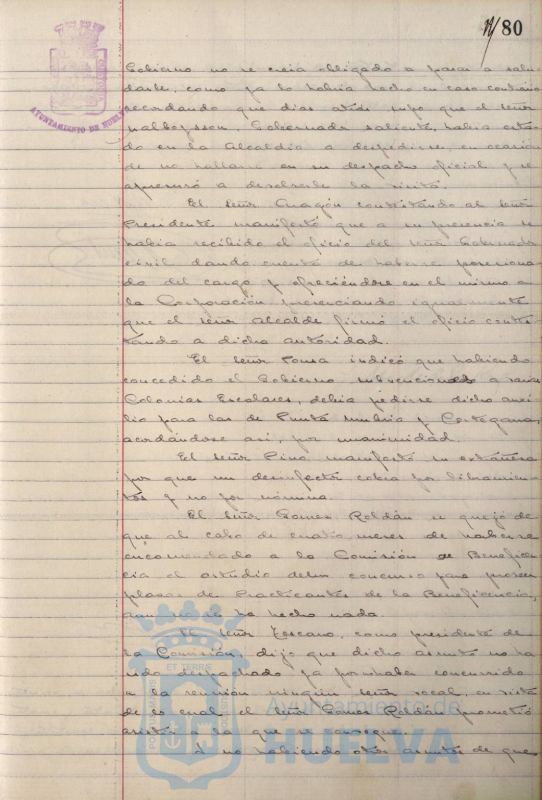 80
AYUNTAMIENTO DE HUELVA
Gobierno no se creía obligado a pasar a salu
darle, como ya lo había hecho en caso contrario
recordando que días atrás supo que el señor
Gobernador saliente, había esta
do en la Alcaldía a despedirse, en ocasión
de no hallarse en su despacho oficial y se
apresuró a devolverle la visita.
El señor Aragón contestando al señor
Presidente manifestó que a su presencia se
había recibido el oficio del señor Gobernador
civil dando cuenta de haberse posesiona
do del cargo y ofreciéndose en el mismo a
la Corporación, presenciando igualmente
que el señor Alcalde firmó el oficio contes
tando a dicha autoridad.
El señor Ponsa indicó que habiendo
concedido el Gobierno subvenciones a varias
Colonias Escolares, debía pedirse dicho auxi
lio para las de Punta Umbría y Cortegana,
acordándose así, por unanimidad.
El señor Pino manifestó su extrañeza
por que un desinfector cobra por libramien
tos y no por nómina.
El señor Gomez Roldán se quejó de
que al cabo de cuatro meses de haberse
encomendado a la Comisión de Beneficen
cia el estudio de un concurso para proveer
plazas de Practicantes de la Beneficencia,
aun no se ha hecho nada.
El señor Toscano, como presidente de
la Comisión, dijo que dicho asunto no ha
sido despachado ya por haber concurrido
a la reunión ningún señor vocal, en vista
de lo cual el señor Gomez Roldán prometió
asistir a la que se convoque.
Y no habiendo otros asuntos de que
PORTUS MARIS ET TERRAE CUSTODIA
Ayuntamiento de
HUELVA